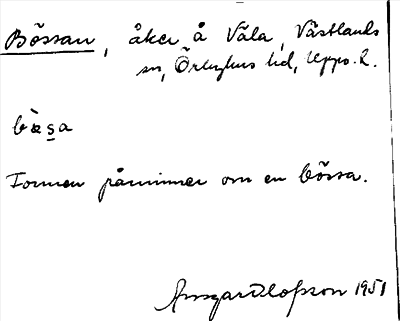 Bössan, åker å Väla, Västlands
sn, Örbyhus hd, Upps. l.
bæ̀s̲a
Formen påminner om en bössa.
Ansgar Olofsson 1951